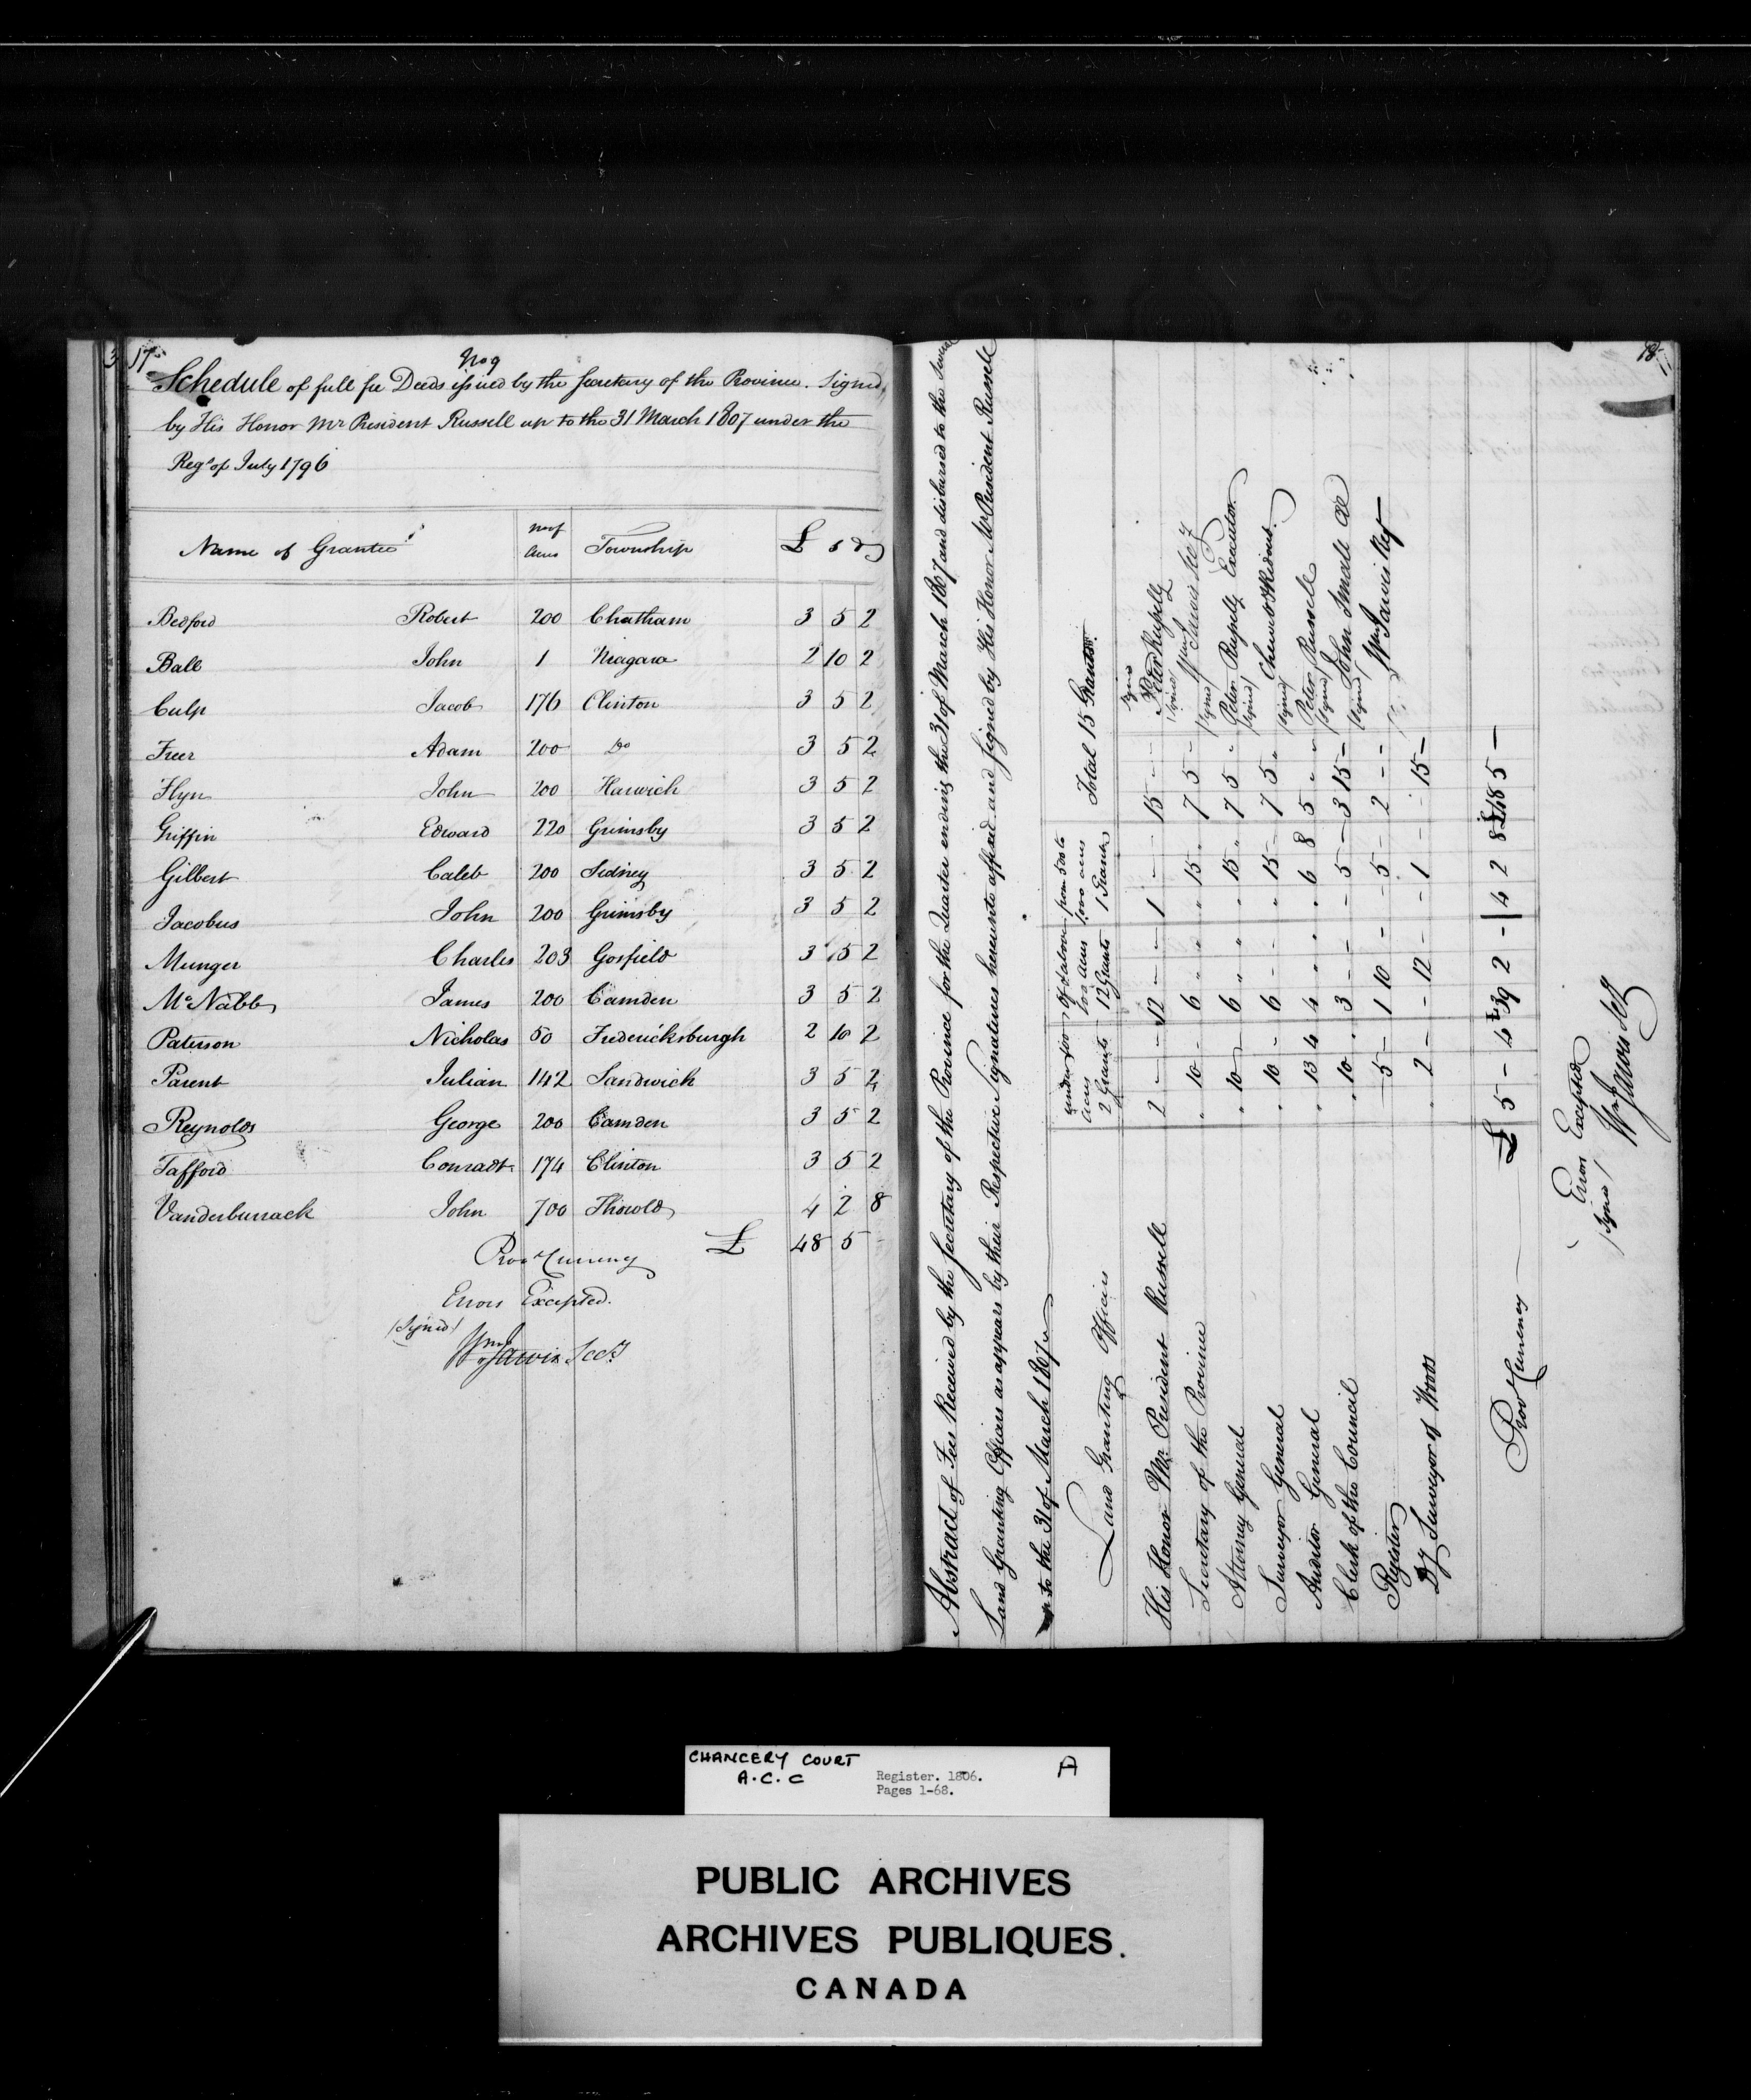 17
No 9
Schedule of full fee Deeds issued by the Secretary of the Province. Signed
by His Honor Mr President Russell up to the 31 March 1807 under the
Regs of July 1796
Name of Grantee No of Acres Township £ s d
Bedford Robert 200 Chatham 3 5 2
Ball John 1 Niagara 2 10 2
Culp Jacob 176 Clinton 3 5 2
Freer Adam 200 Do 3 5 2
Flyn John 200 Harwich 3 5 2
Griffin Edward 220 Grimsby 3 5 2
Gilbert Caleb 200 Sidney 3 5 2
Jacobus John 200 Grimsby 3 5 2
Munger Charles 203 Gosfield 3 5 2
McNabb James 200 Camden 3 5 2
Paterson Nicholas 50 Fredericksburgh 2 10 2
Parent Julian 142 Sandwich 3 5 2
Reynolds George 200 Camden 3 5 2
Tafford Conradt 174 Clinton 3 5 2
Vanderburrack John 700 Thorold 4 2 8
Prov Currency £ 48 5
Errors Excepted.
(Signed)
Wm Jarvis Secy
18
Abstract of Fees Received by the Secretary of the Province for the Quarter ending the 31 of March 1807 and disbursed to the several
Land Granting Officers as appears by their Respective Signatures hereunto affixed and signed by His Honor Mr President Russell
up to the 31 of March 1807
Land Granting Officers under 100 acres 2 Grants 12 Grants from 500 to 1000 acres 1 Grant Total 15 Grants
His Honor Mr President Russell 2 - - 12 - - 1 - - 15 - - signed Peter Russell
Secretary of the Province " 10 - 6 " " " 15 " 7 5 - signed Wm Jarvis Secy
Attorney General " 10 - 6 " " " 15 " 7 5 " signed Peter Russell Executor
Surveyor General " 10 - 6 - - " 15 - 7 5 " signed Chewett & Ridout
Auditor General " 13 4 4 " " " 6 8 5 " " signed Peter Russell
Clerk of the Council " 10 " 3 - - - 5 - 3 15 - signed John Small CC
Register - 5 - 1 10 - - 5 - 2 - - signed Wm Jarvis Reg
Dy Surveyor of Woods " 2 - - 12 - - 1 - - 15 -
Prov Currency £ 5 - 4 £39 2 - 4 2 8 £48 5 -
Errors Excepted
(Signed) Wm Jarvis Secy
CHANCERY COURT
A.C.C
Register. 1806.
Pages 1-68.
A
PUBLIC ARCHIVES
ARCHIVES PUBLIQUES.
CANADA